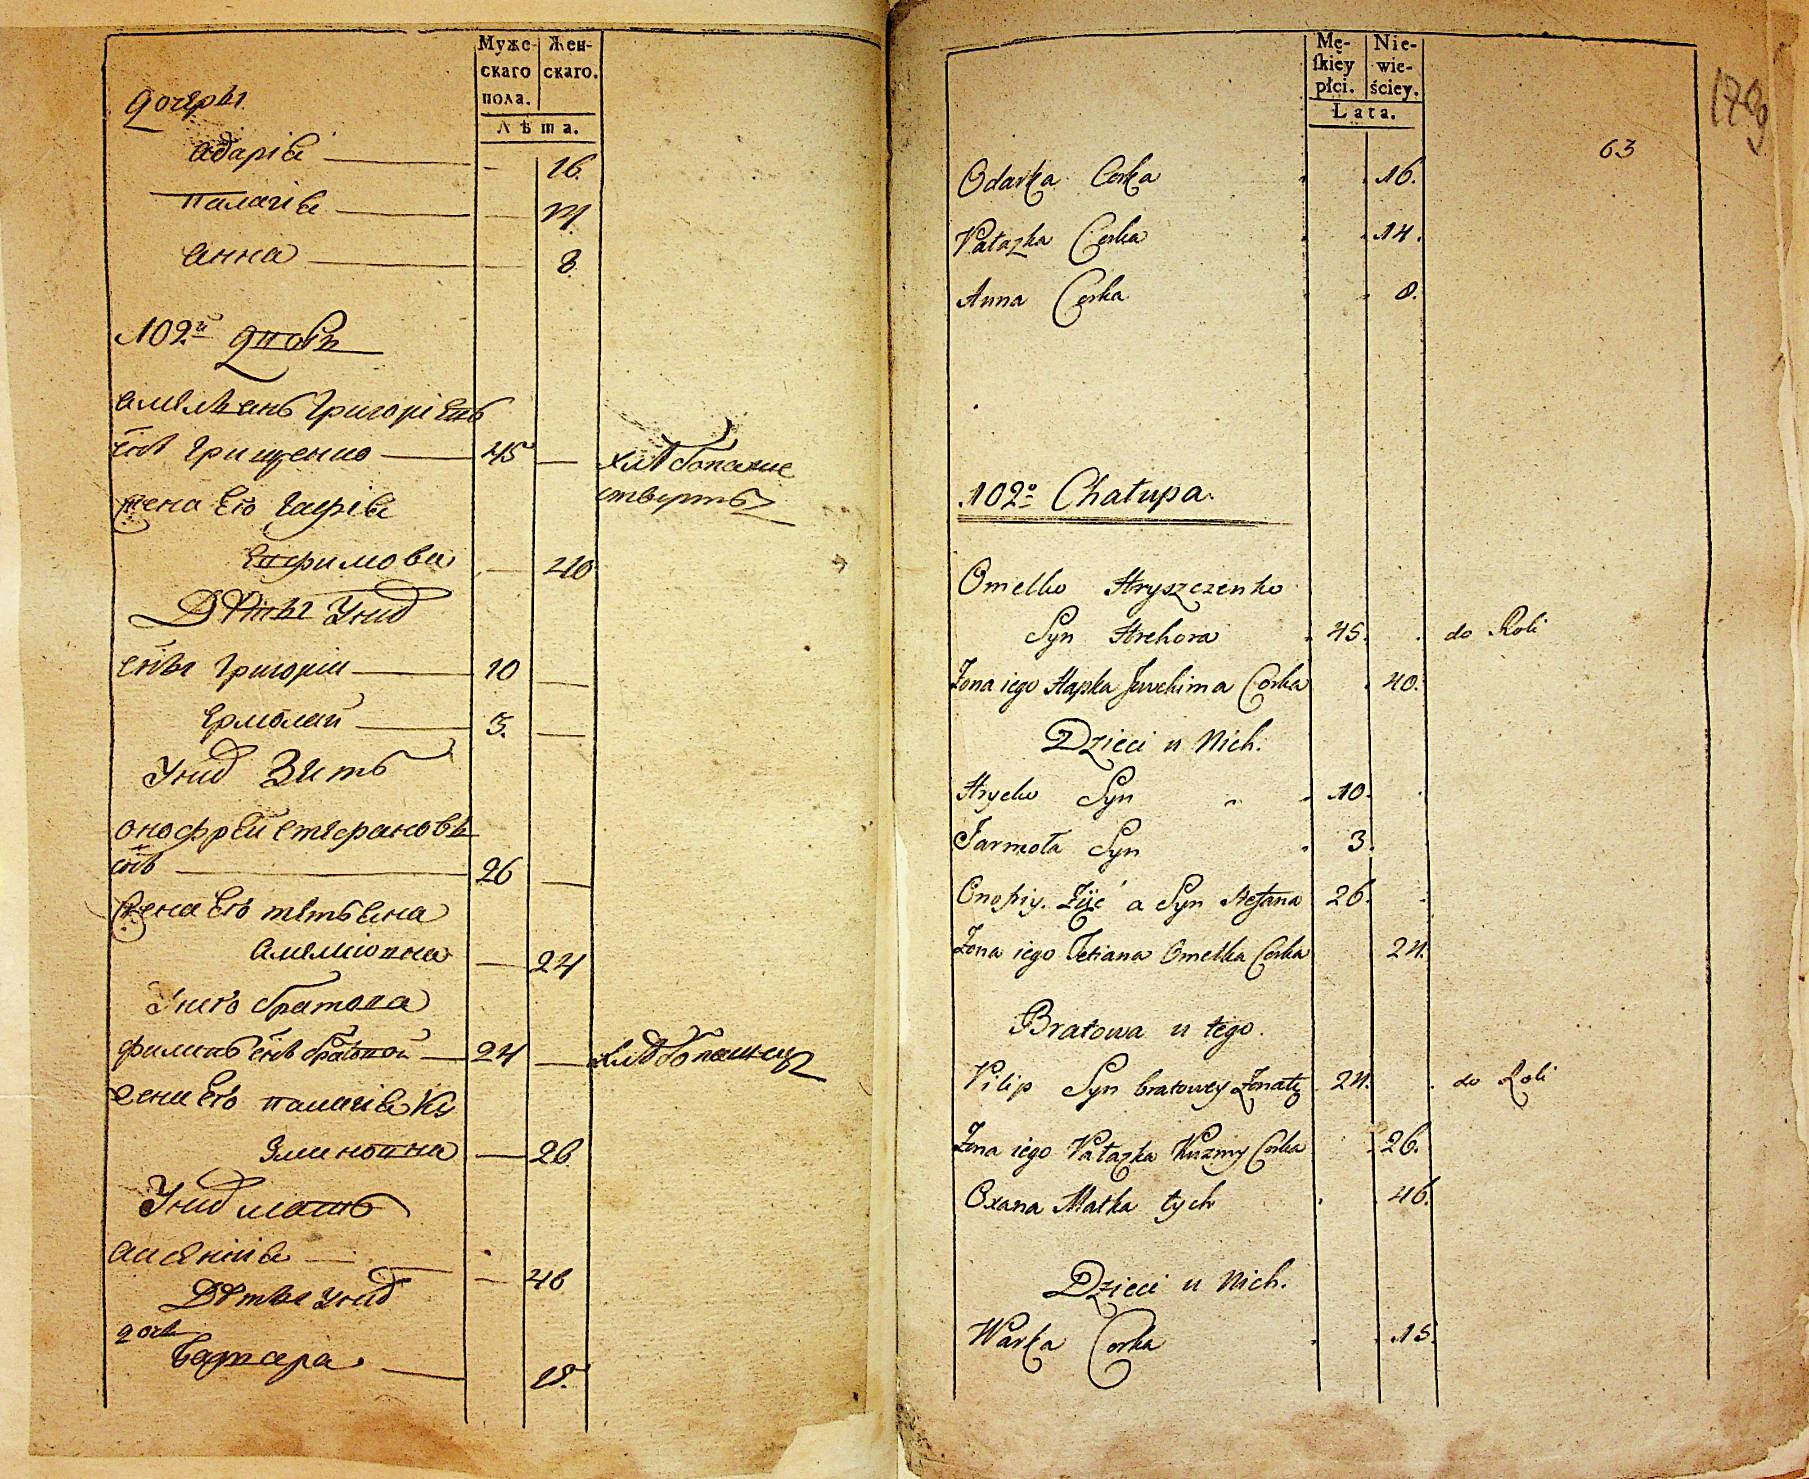 Муже-
скаго
пола.
Жен-
скаго.
Лѣта.
дочеры
адаріѣ 16.
палагіѣ 14
анна 8
102й дворъ
амелѣанъ Григоріевъ
снъ Грищенко 45 хлѣбопаше
ствертъ
жена Его Гапіѣ
Ефимова 40
Дѣты Унид
сны Григорій 10
Ермолай 3.
Унид Зять
онофрей стефановъ
снъ 26
жена Его тетьяна
амеліовна 24
Унего братова
филипъ снъ братовой 24 хлѣбопашец
жена Его палагіѣ Ку
зминовна 26
Унид мать
аксеніѣ 46
Дѣты Унид
дочь
Варвара 15.
Mę-
skiey
płci.
Nie-
wie-
ściey.
Lata.
179
63
Odarka Corka 16.
Pałazka Corka 14.
Anna Corka 8.
102o Chałupa.
Omelko Hryszczenko
Syn Hrehora 45. do Roli
Żona iego Hapka Jewchima Corka 40.
Dzieci u Nich.
Hryćko Syn 10.
Jarmoła Syn 3.
Onofriy. Zięć a Syn Stefana 26.
Żona iego Tetiana Omelka Corka 24.
Bratowa u tego.
Filip Syn bratowey Żonaty 24. do Roli
Żona iego Pałazka Kuzmy Corka 26.
Oxana Matka tych 46.
Dzieci u Nich.
Warka Corka 15.